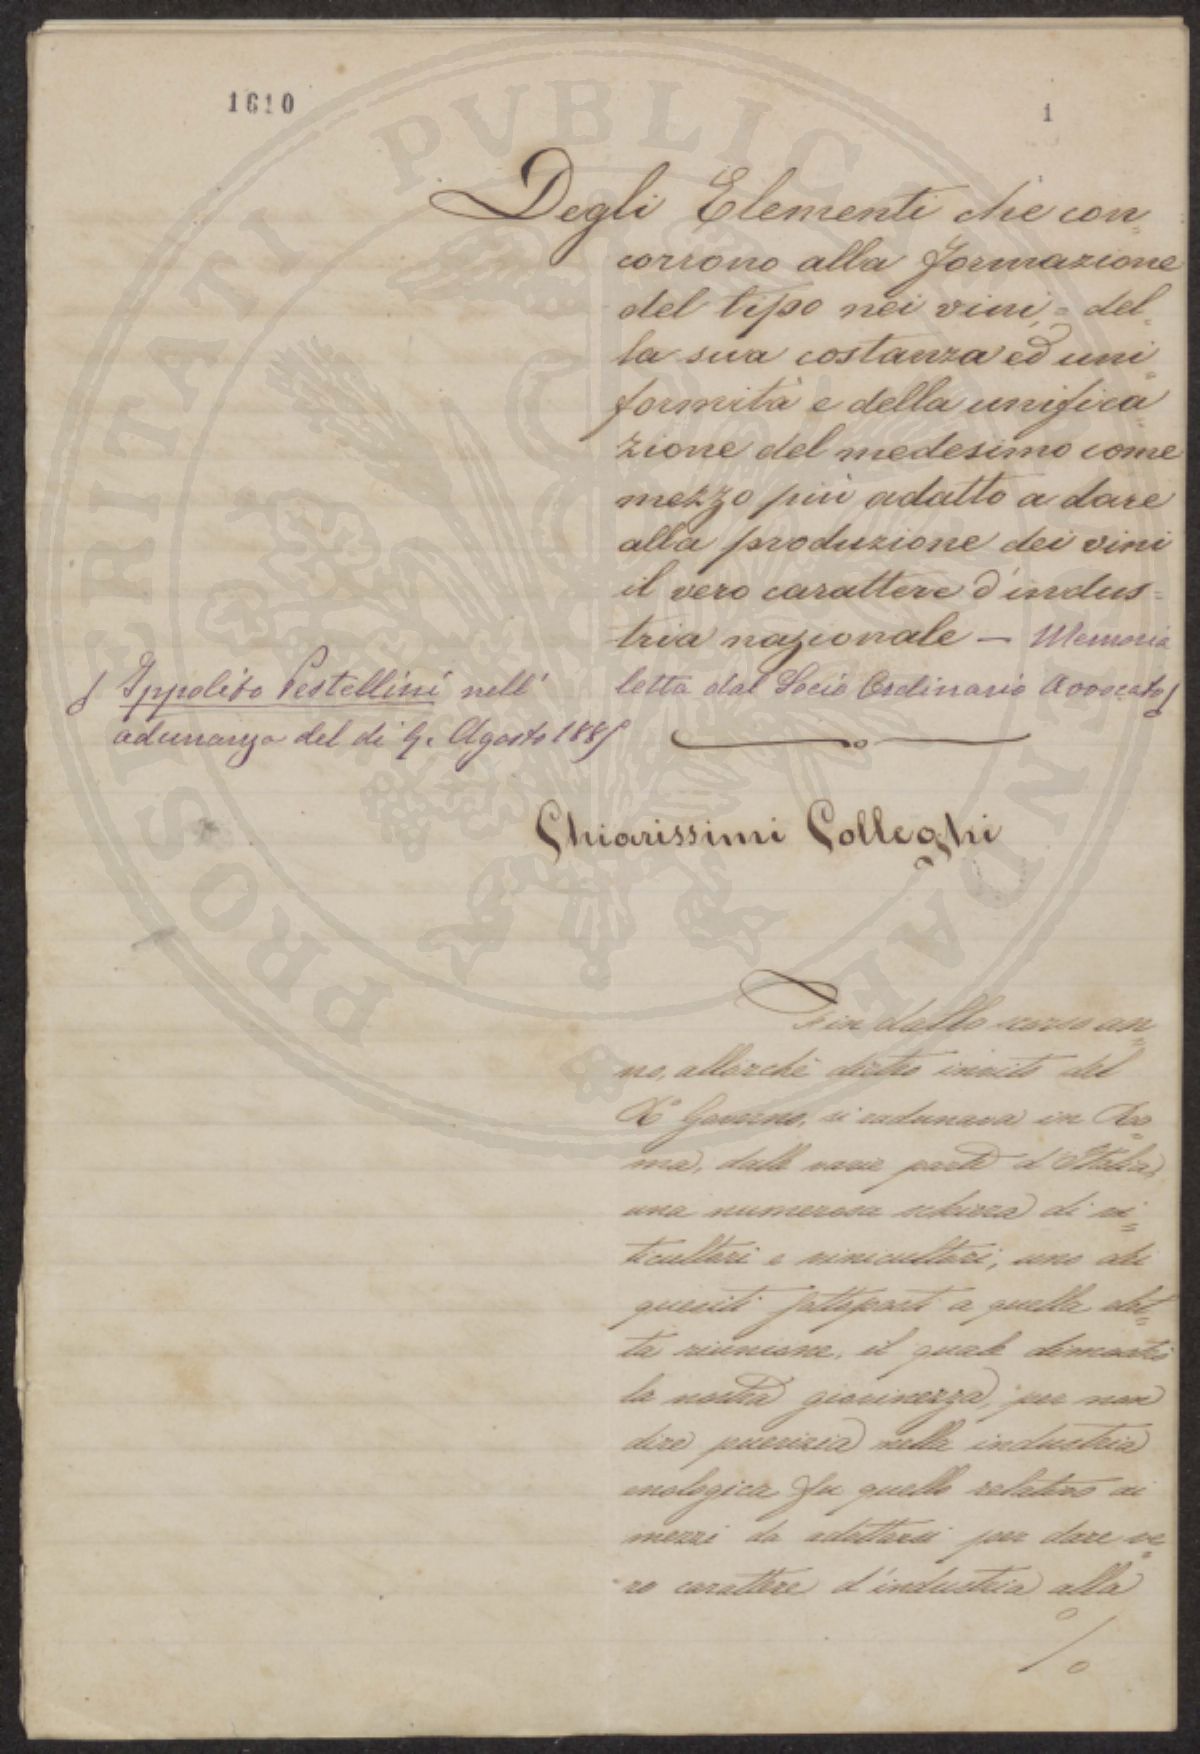 1610
1
Degli Elementi che con=
corrono alla formazione
del tipo nei vini, = del=
la sua costanza ed uni=
formità e della unifica=
zione del medesimo come
mezzo più adatto a dare
alla produzione dei vini
il vero carattere d'indus=
tria nazionale — Memoria
letta dal Socio Ordinario Avvocato
Ippolito Pestellini nell'
adunanza del dì Agosto 188
Chiarissimi Colleghi
Fin dallo scorso an=
no, allorchè dietro invito del
R° Governo, si radunava in Ro=
ma, dalle varie parti d'Italia,
una numerosa schiera di vi=
ticultori e vinicultori, uno dei
quesiti fatto a quella dot=
ta riunione, il quale dimostrò
la nostra giovinezza, per non
dire puerizia nella industria
enologica fu quello relativo ai
mezzi da adottarsi per dare ve=
ro carattere d'industria alla
%
PROSPERITATI PVBLICAE AVGENDAE